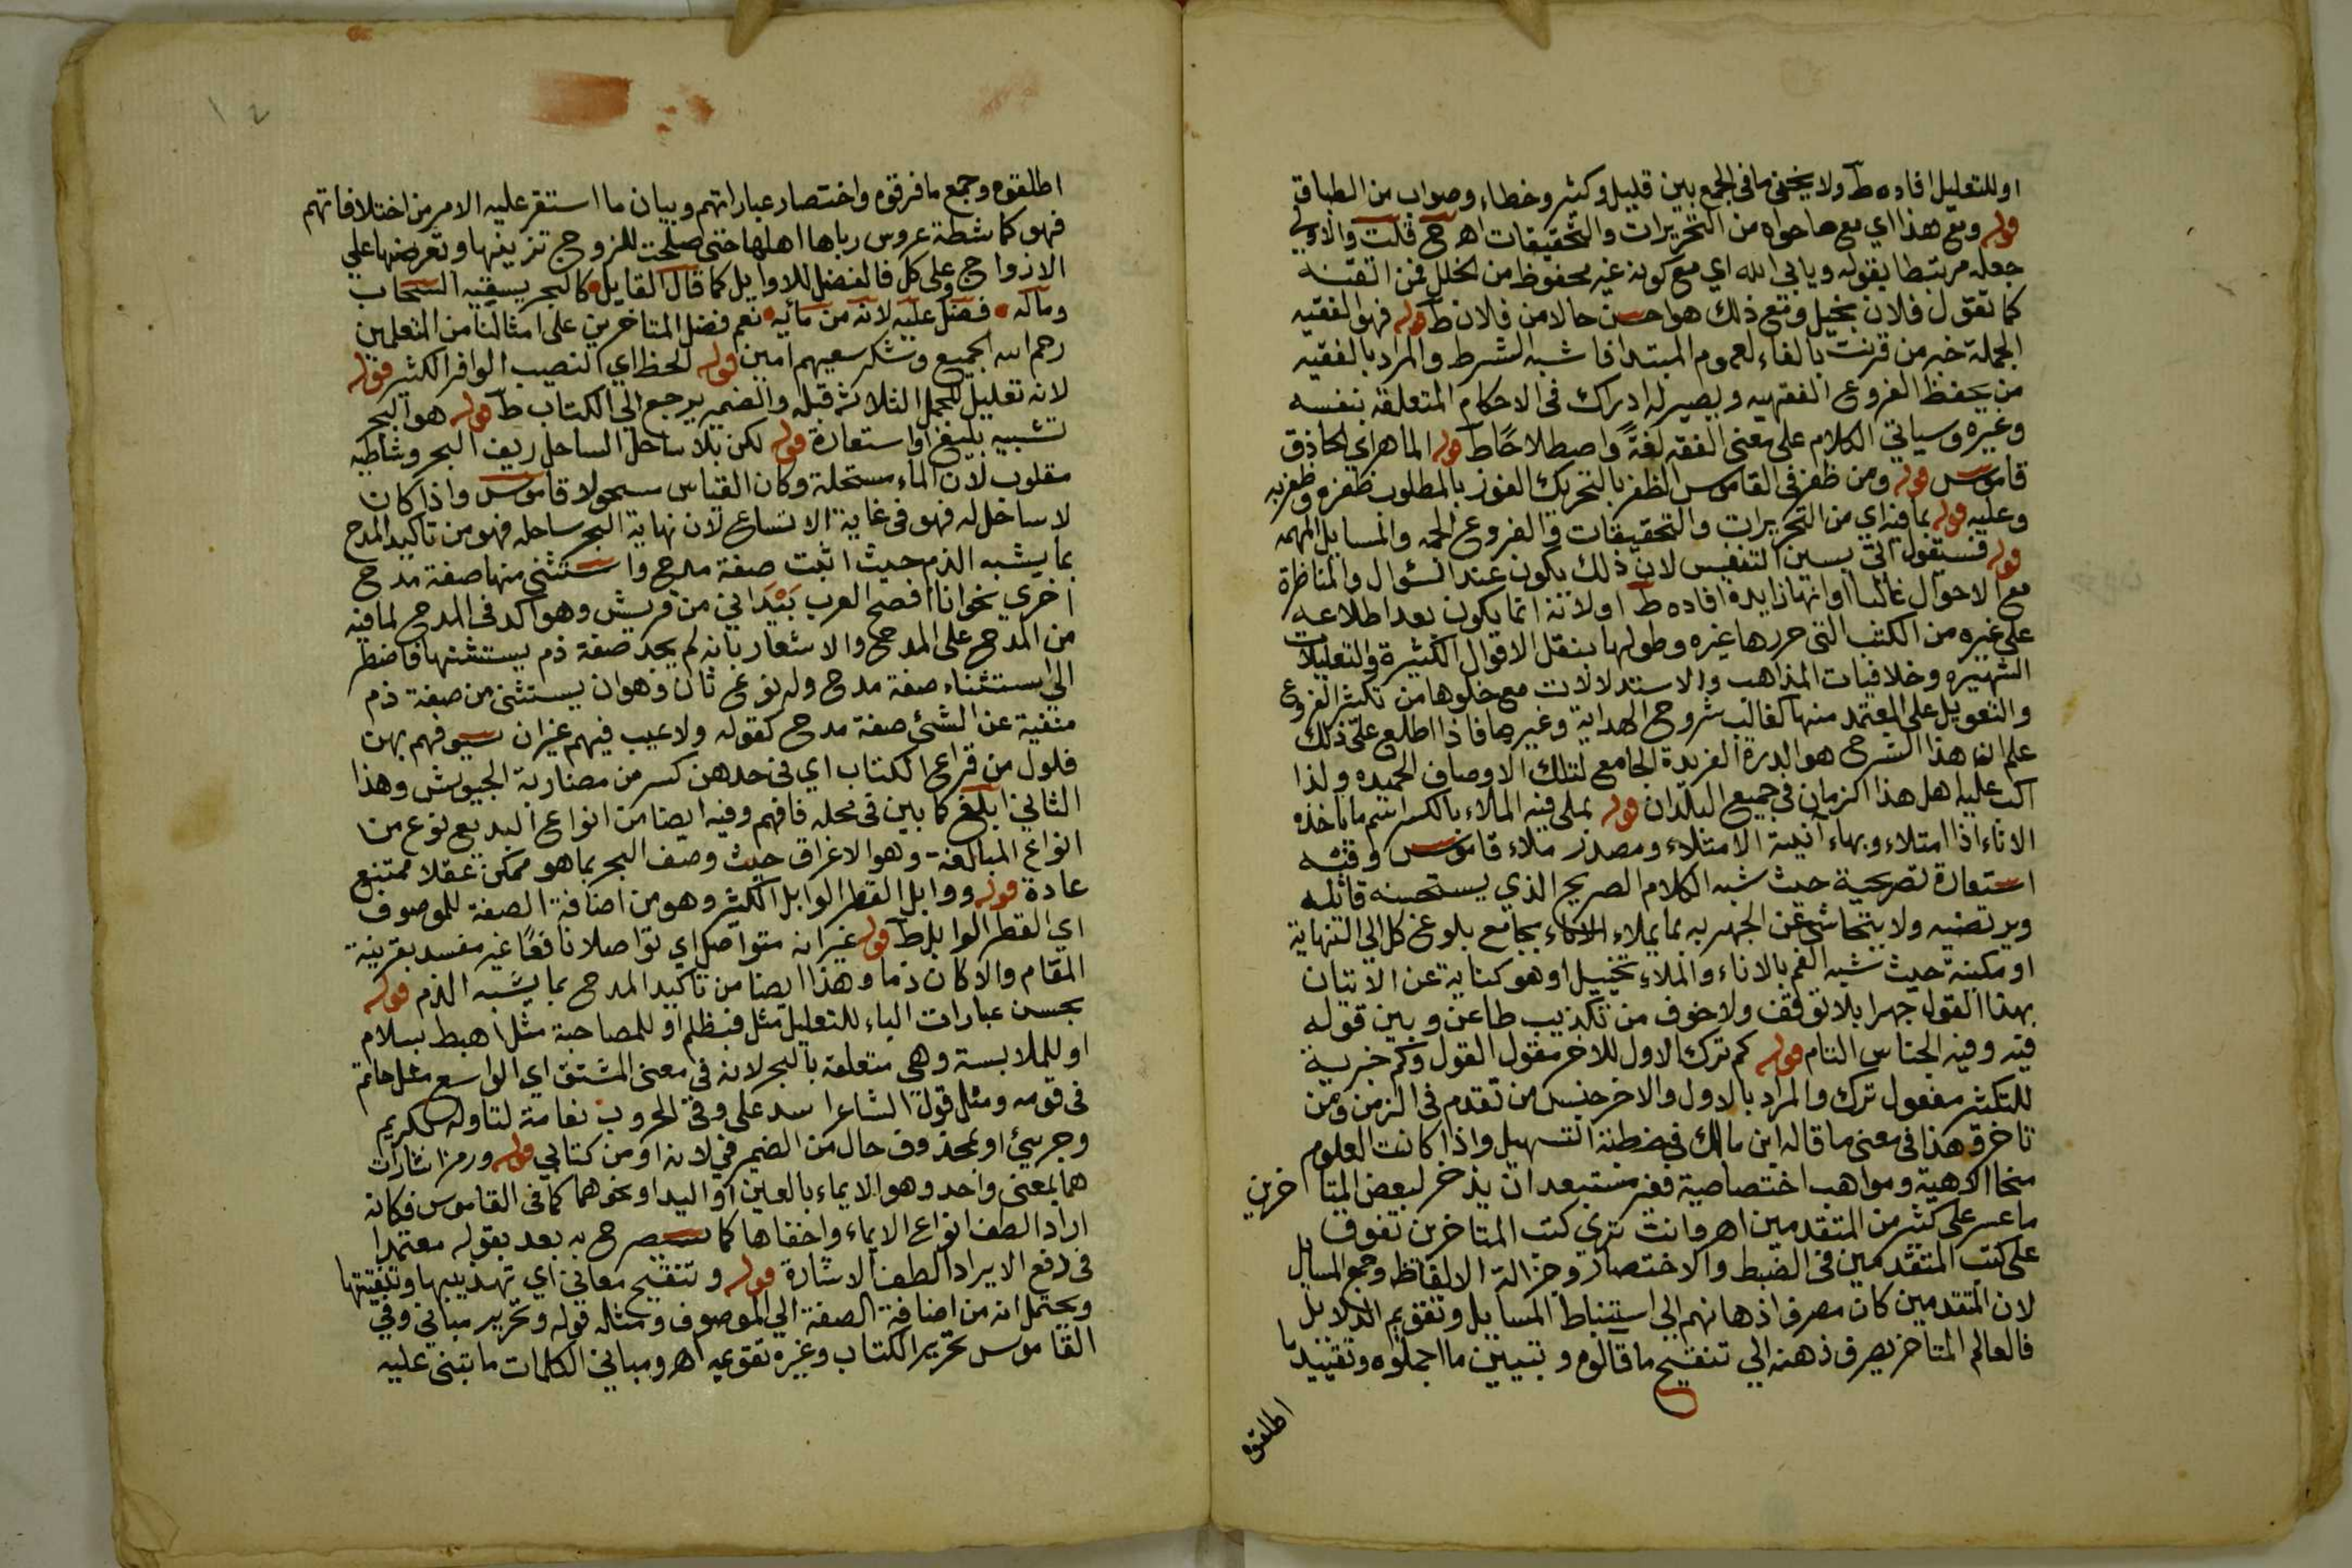 او للتعليل افاده ط ولا يخفى ما فى الجمع بين قليل وكثير وخطاء وصواب من الطباق
قوله ومع هذا اي مع ما حواه من التحريرات والتحقيقات اهـ ح قلت والاولى
جعله مرتبطا بقوله ويابى الله اي مع كونه غير محفوظ من الخلل فمن اتقنه
كما تقول فلان بخيل ومع ذلك هو احسن حالا من فلان ط قوله فهو الفقيه
الجملة خبر من قرنت بالفاء لعموم المبتدا فاشبه الشرط والمراد بالفقيه
من يحفظ الفروع الفقهيه ويصير له ادراك فى الاحكام المتعلقة بنفسه
وغيره وسياتي الكلام على معنى الفقه لغةً واصطلاحًا ط قوله الماهر اي الحاذق
قاموس قوله ومن ظفر فى القاموس الظفر بالتحريك الفوز بالمطلوب ظفره وظفر به
وعليه قوله بما فيه اي من التحريرات والتحقيقات والفروع الجمه والمسايل المهمه
قوله فسيقول اتى بسين التنفيس لان ذلك يكون عند السؤال والمناظرة
مع الاحوال غالبا او انها زايدة افاده ط او لانه انما يكون بعد اطلاعه
على غيره من الكتب التي حررها غيره وطولها بنقل الاقوال الكثيرة والتعليلات
الشهيره وخلافيات المذاهب والاستدلالات مع خلوها من تكثير الفروع
والتعويل على المعتمد منها كغالب شروح الهداية وغيرها فاذا اطلع على ذلك
علم ان هذا الشرح هو الدرة الفريدة الجامع لتلك الاوصاف الحميده ولذا
اكب عليه اهل هذا الزمان فى جميع البلدان قوله بملى فيه الملاء بالكسر اسم ما ياخذه
الاناء اذا امتلاء وبهاء آنية الامتلاء ومصدر ملاء قاموس وفيه
استعارة تصريحية حيث شبه الكلام الصريح الذي يستحسنه قائله
ويرتضيه ولا يتحاشى عن الجهر به بما يملاء الاناء بجامع بلوغ كل الى النهاية
او مكينة حيث شبه الفم بالاناء والملاء تخييل او هو كناية عن الاتيان
بهذا القول جهرا بلا توقف ولا خوف من تكذيب طاعن وبين قوله
فيه وفيه الجناس التام قوله كم ترك الاول للاخر مقول القول وكم خبرية
للتكثير مفعول ترك والمراد بالاول والاخر جنس من تقدم فى الزمن ومن
تاخر وهذا فى معنى ما قاله ابن مالك فى خطبة التسهيل واذا كانت العلوم
منحا الاهية ومواهب اختصاصية فغير مستبعد ان يذخر لبعض المتاخرين
ما عسر على كثير من المتقدمين اهـ وانت ترى كتب المتاخرين تفوق
على كتب المتقدمين فى الضبط والاختصار وجزالة الالفاظ وجمع المسايل
لان المتقدمين كان مصرف اذهانهم الى استنباط المسايل وتقويم الدلايل
فالعالم المتاخر يصرف ذهنه الى تنقيح ما قالوه وتبيين ما اجملوه وتقييد ما
اطلقوه
١٢
اطلقوه وجمع ما فرقوه واختصار عباراتهم وبيان ما استقر عليه الامر من اختلافاتهم
فهو كماشطة عروس رباها اهلها حتى صلحت للزوج تزينها وتعرضها على
الازواج وعلى كل فالفضل للاوايل كما قال القايل كالبحر يسقيه السحاب
وماله فضل عليه لانه من مائه نعم فضل المتاخرين على امثالنا من المتعلمين
رحم الله الجميع وشكر سعيهم امين قوله الحظ اي النصيب الوافر الكثير قوله
لانه تعليل للجمل الثلاثه قبله والضمير يرجع الى الكتاب ط قوله هو البحر
تشبيه بليغ او استعارة قوله لكن بلا ساحل الساحل ريف البحر وشاطيه
مقلوب لان الماء سحله وكان القياس مسحولا قاموس واذا كان
لا ساحل له فهو فى غاية الاتساع لان نهاية البحر ساحله فهو من تاكيد المدح
بما يشبه الذم حيث اثبت صفة مدح واستثنى منها صفة مدح
اخرى نحو انا افصح العرب بَيْدَ اني من قريش وهو اكد فى المدح لما فيه
من المدح على المدح والاشعار بانه لم يجد صفة ذم يستثنها فاضطر
الى استثناء صفة مدح وله نوع ثان وهو ان يستثنى من صفة ذم
منفية عن الشئ صفة مدح كقوله ولا عيب فيهم غير ان سيوفهم بهن
فلول من قراع الكتاب اي فى حدهن كسر من مضاربة الجيوش وهذا
الثاني ابلغ كما بين فى محله فافهم وفيه ايضا من انواع البديع نوع من
انواع المبالغة وهو الاغراق حيث وصف البحر بما هو ممكن عقلا ممتنع
عادة قوله ووابل القطر الوابل الكثير وهو من اضافة الصفة للموصوف
اي القطر الوابل ط قوله غير انه متواصل اي تواصلا نافعًا غير مفسد بقرينة
المقام والا كان ذما وهذا ايضا من تاكيد المدح بما يشبه الذم قوله
بحسن عبارات الباء للتعليل مثل فبظلم او للمصاحبة مثل اهبط بسلام
او للملابسة وهى متعلقة بالبحر لانه فى معنى المشتق اي الواسع مثل حاتم
فى قومه ومثل قول الشاعر اسد على وفى الحروب نعامة لتاوله بكريم
وجريئ او بمحذوف حال من الضمير فى لانه او من كتابي قوله ورمز اشارات
هما بمعنى واحد وهو الايماء بالعين او اليد او نحوهما كما فى القاموس فكانه
اراد الطف انواع الايماء واخفاها كما سيصرح به بعد بقوله معتمدا
فى دفع الايراد الطف الاشارة قوله وتنقيح معاني اي تهذيبها وتنقيتها
ويحتمل انه من اضافة الصفة الى الموصوف ومثله قوله وتحرير مباني وفى
القاموس تحرير الكتاب وغيره تقويمه اهـ ومباني الكلمات ما تبنى عليه